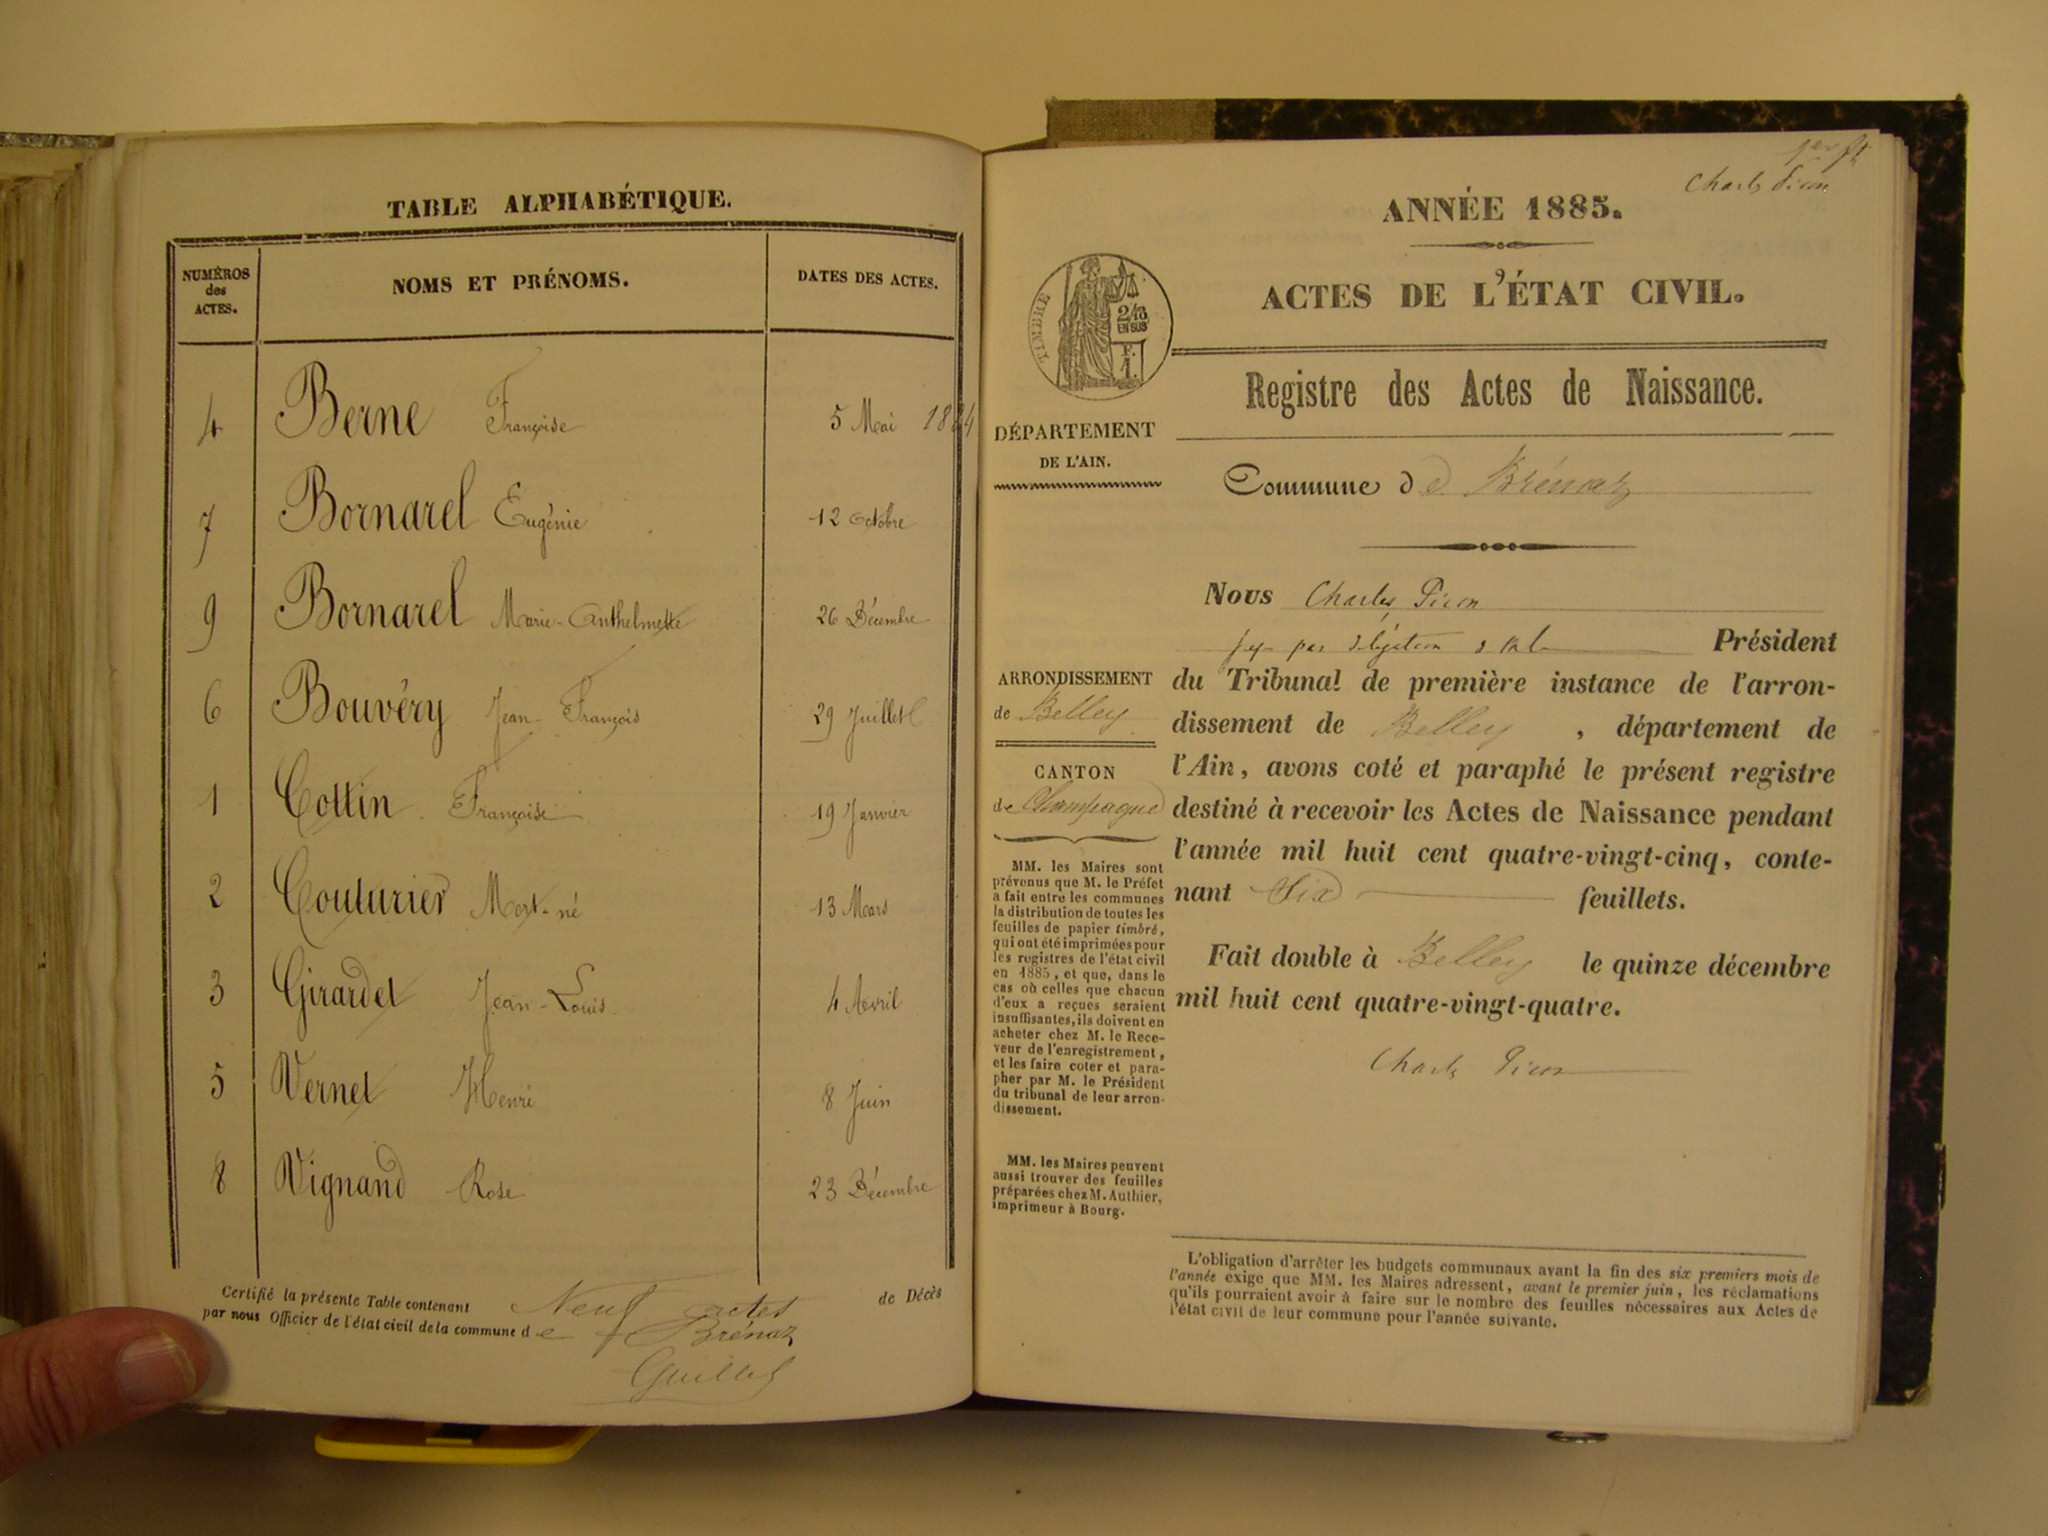 TABLE ALPHABÉTIQUE.
NUMÉROS des ACTES. NOMS ET PRÉNOMS. DATES DES ACTES.
4 Berne Françoise 5 Mai 1884
7 Bornarel Eugénie 12 Octobre
9 Bornarel Marie-Anthelmette 26 Décembre
6 Bouvéry Jean-François 29 Juillet
1 Cottin Françoise 19 Janvier
2 Couturier Mort-né 13 Mars
3 Girardet Jean-Louis 4 Avril
5 Vernet Henri 8 Juin
8 Vignand Rose 23 Décembre
Certifié la présente Table contenant Neuf actes de Décès
par nous Officier de l'état civil de la commune de Brénaz
Guillet
1er
Charles Picon
ANNÉE 1885.
ACTES DE L'ÉTAT CIVIL.
TIMBRE
2/10
EN SUS
F.
1.
Registre des Actes de Naissance.
DÉPARTEMENT
DE L'AIN.
Commune de Brénaz
Nous Charles Picon
par délégation Président
du Tribunal de première instance de l'arron-
dissement de Belley, département de
l'Ain, avons coté et paraphé le présent registre
destiné à recevoir les Actes de Naissance pendant
l'année mil huit cent quatre-vingt-cinq, conte-
nant Six feuillets.
Fait double à Belley le quinze décembre
mil huit cent quatre-vingt-quatre.
Charles Picon
ARRONDISSEMENT
de Belley
CANTON
de Champagne
MM. les Maires sont
prévenus que M. le Préfet
a fait entre les communes
la distribution de toutes les
feuilles de papier timbré,
qui ont été imprimées pour
les registres de l'état civil
en 1885, et que, dans le
cas où celles que chacun
d'eux a reçues seraient
insuffisantes, ils doivent en
acheter chez M. le Rece-
veur de l'enregistrement,
et les faire coter et para-
pher par M. le Président
du tribunal de leur arron-
dissement.
MM. les Maires peuvent
aussi trouver des feuilles
préparées chez M. Authier,
imprimeur à Bourg.
L'obligation d'arrêter les budgets communaux avant la fin des six premiers mois de
l'année exige que MM. les Maires adressent, avant le premier juin, les réclamations
qu'ils pourraient avoir à faire sur le nombre des feuilles nécessaires aux Actes de
l'état civil de leur commune pour l'année suivante.